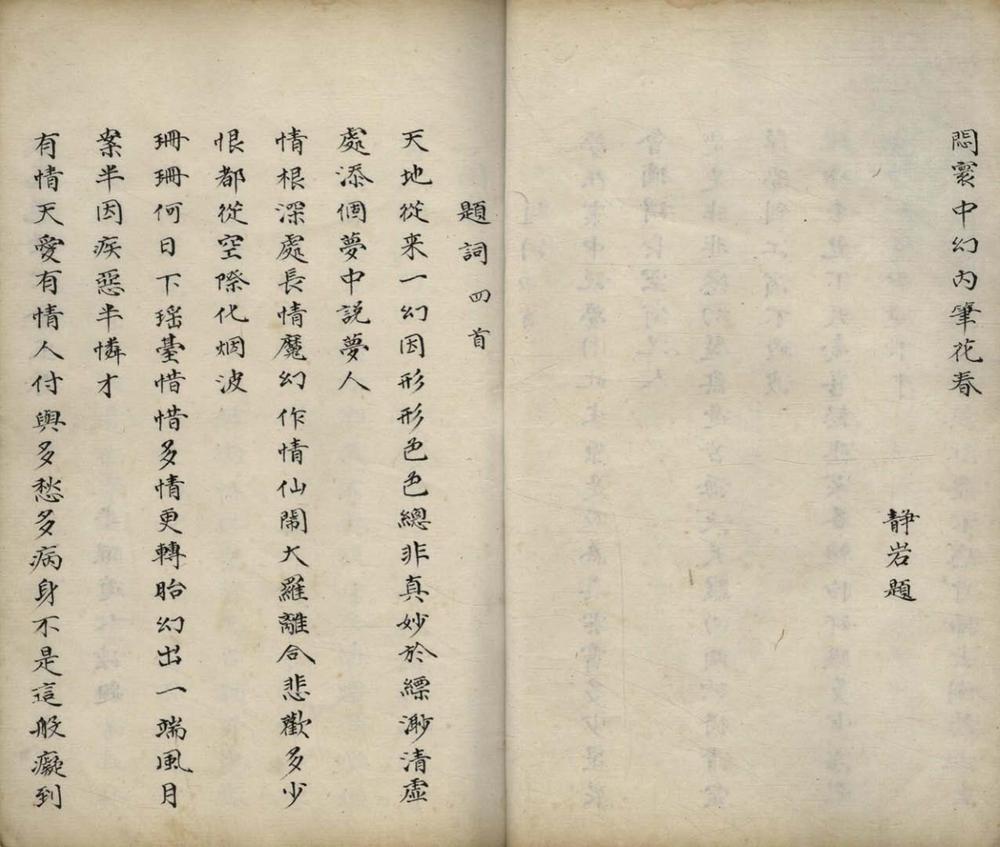 悶寰中幻內筆花春
静岩題
題詞四首
天地從来一幻因形形色色總非真妙於縹渺清虛
處添個夢中説夢人
情根深處長情魔幻作情仙鬧大羅離合悲歡多少
恨都從空際化烟波
珊珊何日下瑶臺惜惜多情更轉胎幻出一端風月
案半因疾惡半憐才
有情天愛有情人付與多愁多病身不是這般癡到